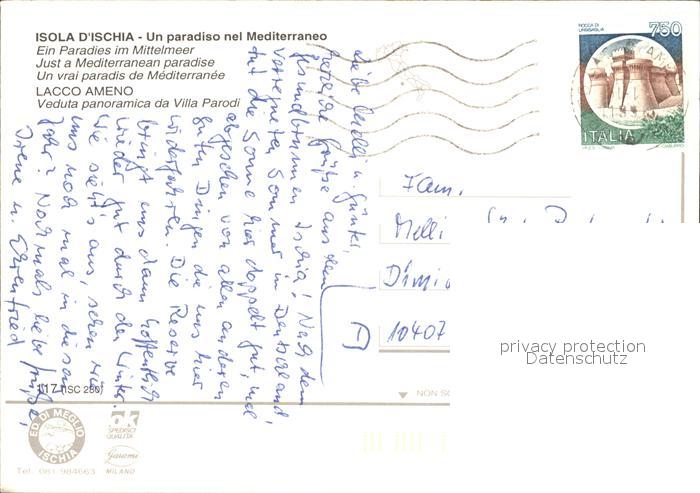 ISOLA D'ISCHIA - Un paradiso nel Mediterraneo
Ein Paradies im Mittelmeer
Just a Mediterranean paradise
Un vrai paradis de Méditerranée
LACCO AMENO
Veduta panoramica da Villa Parodi
Liebe Melli u. Günter,
herzliche Grüße aus dem
gesundbrunnen Ischia! Nach dem
verregneten Sommer in Deutschland
tut die Sonne hier doppelt gut, mal
abgesehen von allen anderen
guten Dingen die uns hier
widerfahren. Die Reserve
bringt uns dann hoffentlich
wieder gut durch den Winter.
Wie sieht's aus, sehen wir
uns noch mal in diesem
Jahr? Nochmals liebe Grüße,
Irene u. Ehrenfried
ROCCA DI URBISAGLIA
750
ITALIA
Fam.
Melli
D 10407
privacy protection
Datenschutz
117 (ISC 280)
NON
ED. DI MEGLIO
ISCHIA
Tel. 081/984663
ak
SPEDISCI
QUALITÀ
Garami
MILANO